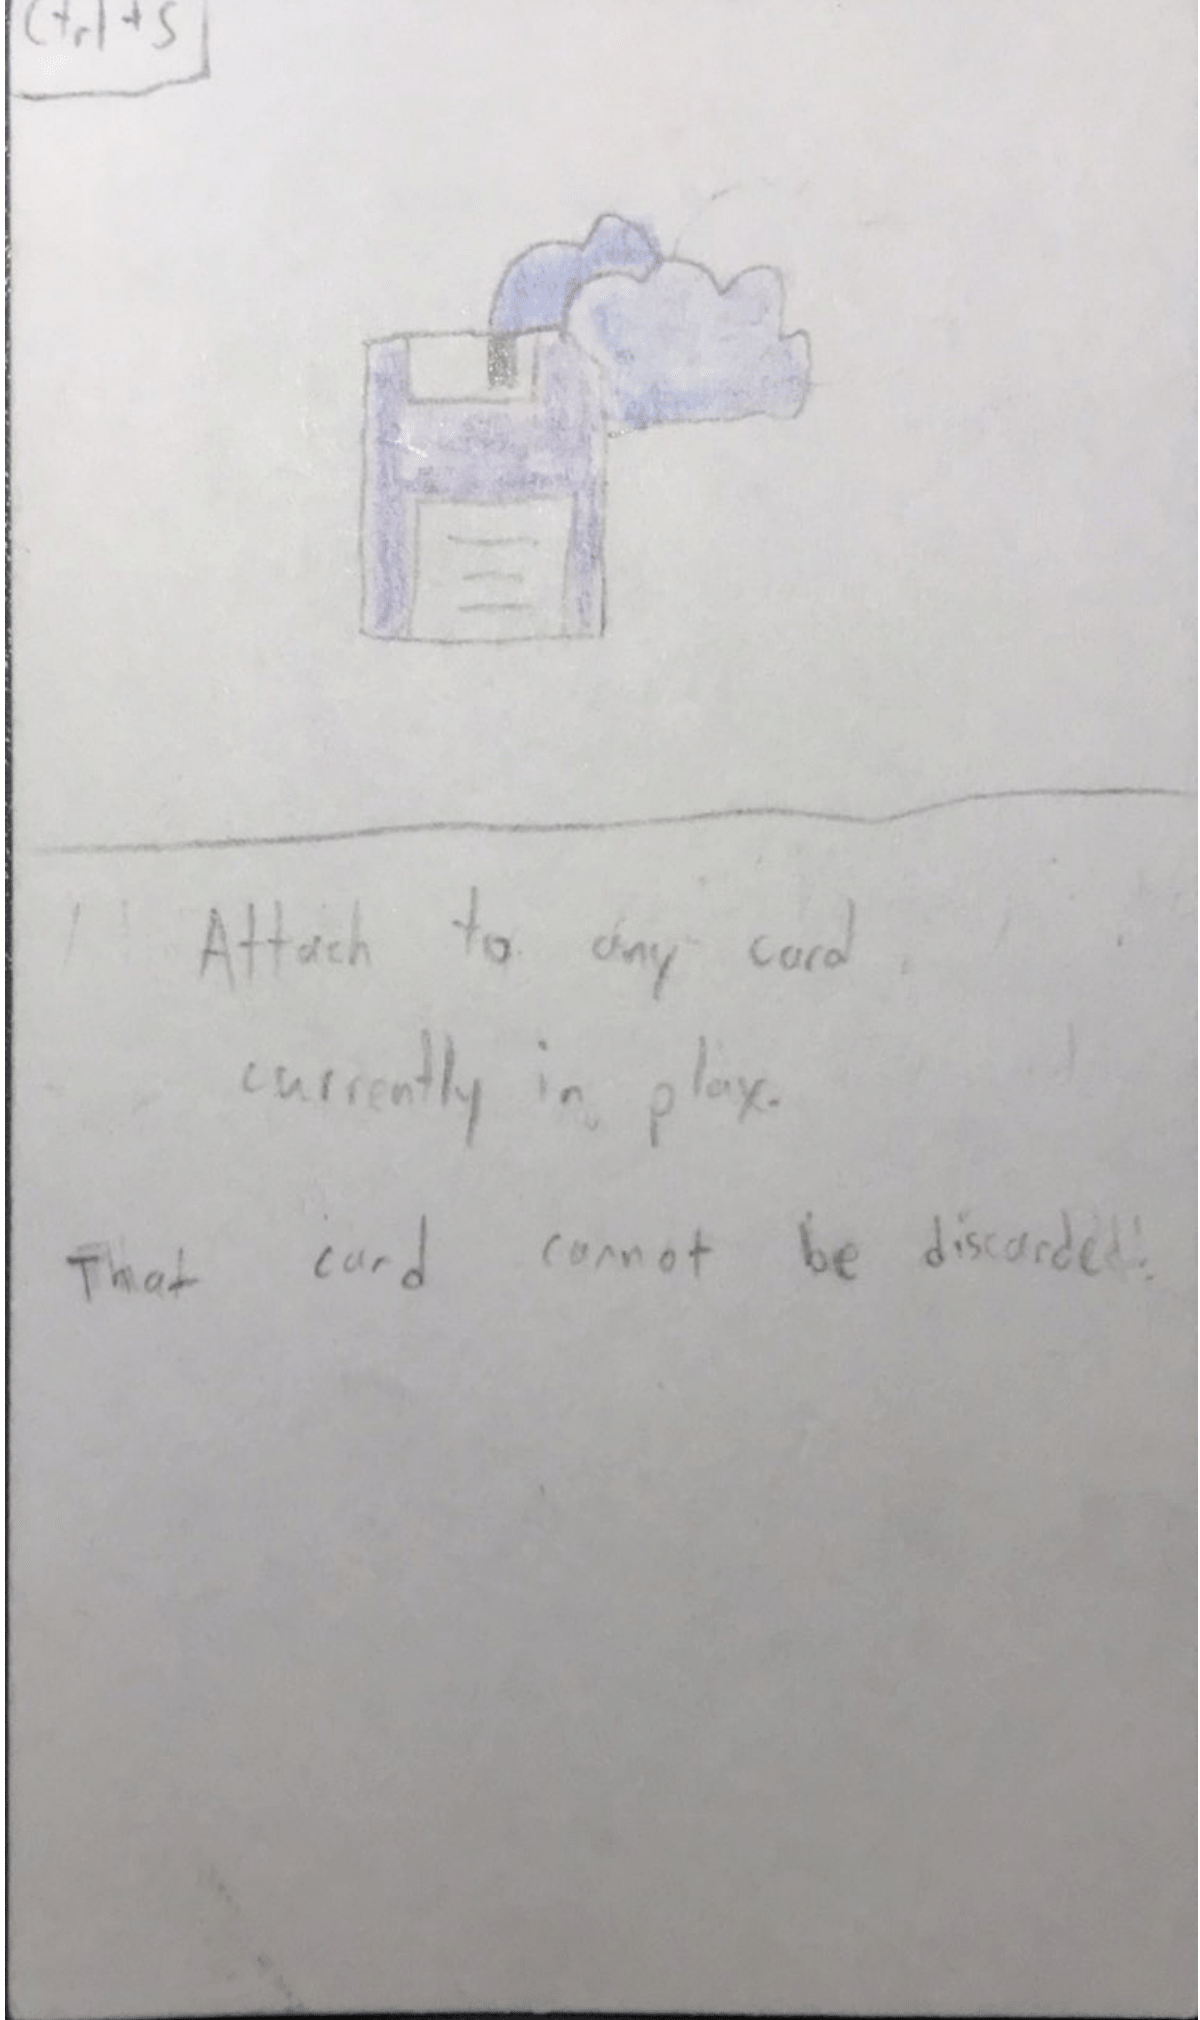 Ctrl+S
Attach to any card
currently in play.
That card cannot be discarded.